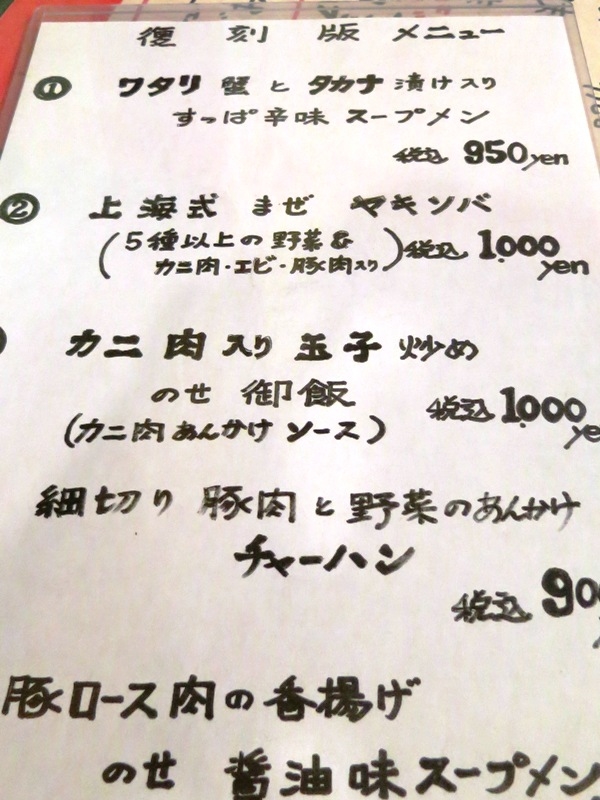 復刻版メニュー
① ワタリ蟹とタカナ漬け入り
すっぱ辛味スープメン
税込 950yen
② 上海式まぜヤキソバ
(5種以上の野菜&
カニ肉・エビ・豚肉入り) 税込 1.000
yen
カニ肉入り玉子炒め
のせ御飯
税込 1.000
ye
(カニ肉あんかけソース)
細切り豚肉と野菜のあんかけ
チャーハン
税込 90
豚ロース肉の香揚げ
のせ醤油味スープメン